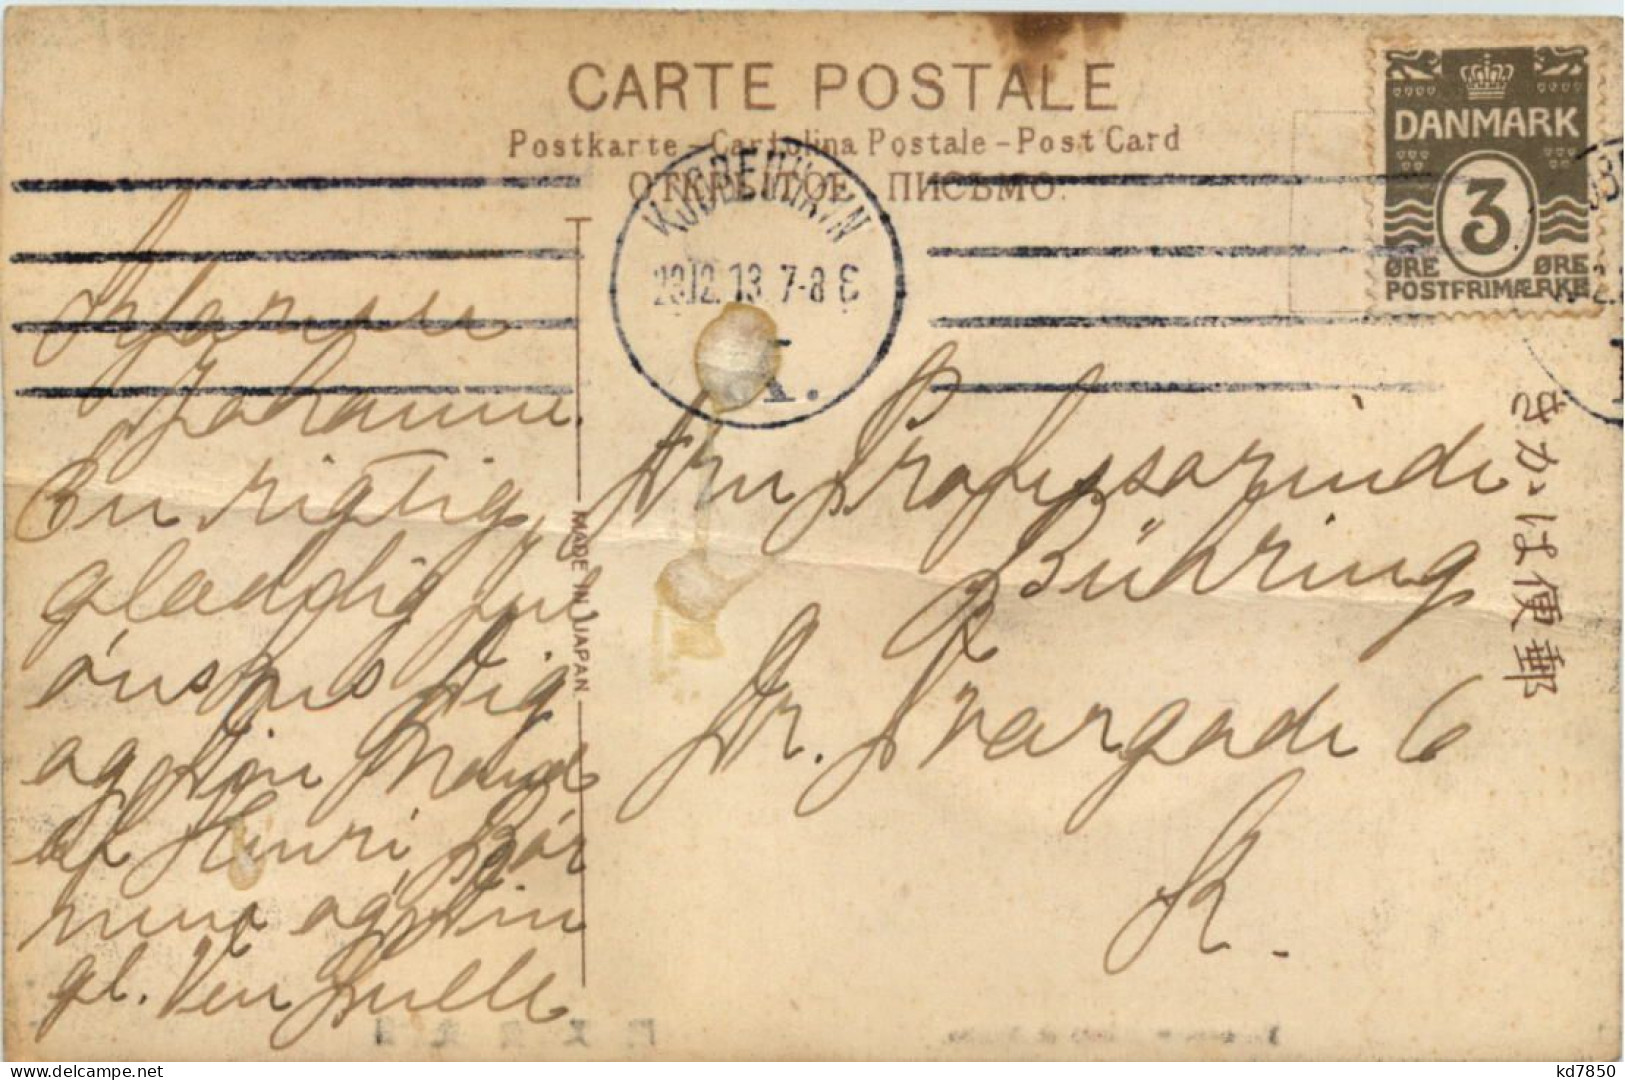 CARTE POSTALE
Postkarte – Cartolina Postale – Post Card
ОТКРЫТОЕ ПИСЬМО.
DANMARK
3
ØRE ØRE
POSTFRIMÆRKE
KJØBENHAVN
23.12.13. 7-8 E
K.
MADE IN JAPAN
きかは便郵
Kjæreste
Johanne.
En rigtig
glædelig Jul
ønskes Dig
og Din Mand
af Henri, Bør
nene og Din
gl. Ven Julle
Fru Professorinde
Bühring
St. Kongensgade 6
K.
kd7850